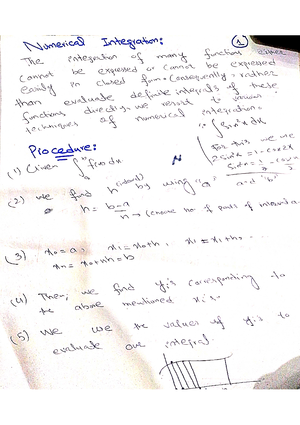 Numerical Integration: 1
The integration of many functions either
cannot be expressed or cannot be expressed
easily in closed form. Consequently, rather
than evaluate definite integrals of these
functions directly, we resort to various
techniques of numerical integration.
∫ Sin²x dx
For this we use
2Sin²x = 1 - cos2x
Procedure:
(1) Given ∫ f(x)dx
(2) we find h (interval) by using "a" and "b"
h = b-a/n
n → (choose no. of parts of interval
(3) x₀ = a, x₁ = x₀+h, x₂ = x₁+h,
xₙ = x₀+nh = b
(4) Then, we find yᵢ's corresponding to
the above mentioned xᵢ's.
(5) We use the values of yᵢ's to
evaluate our integral.